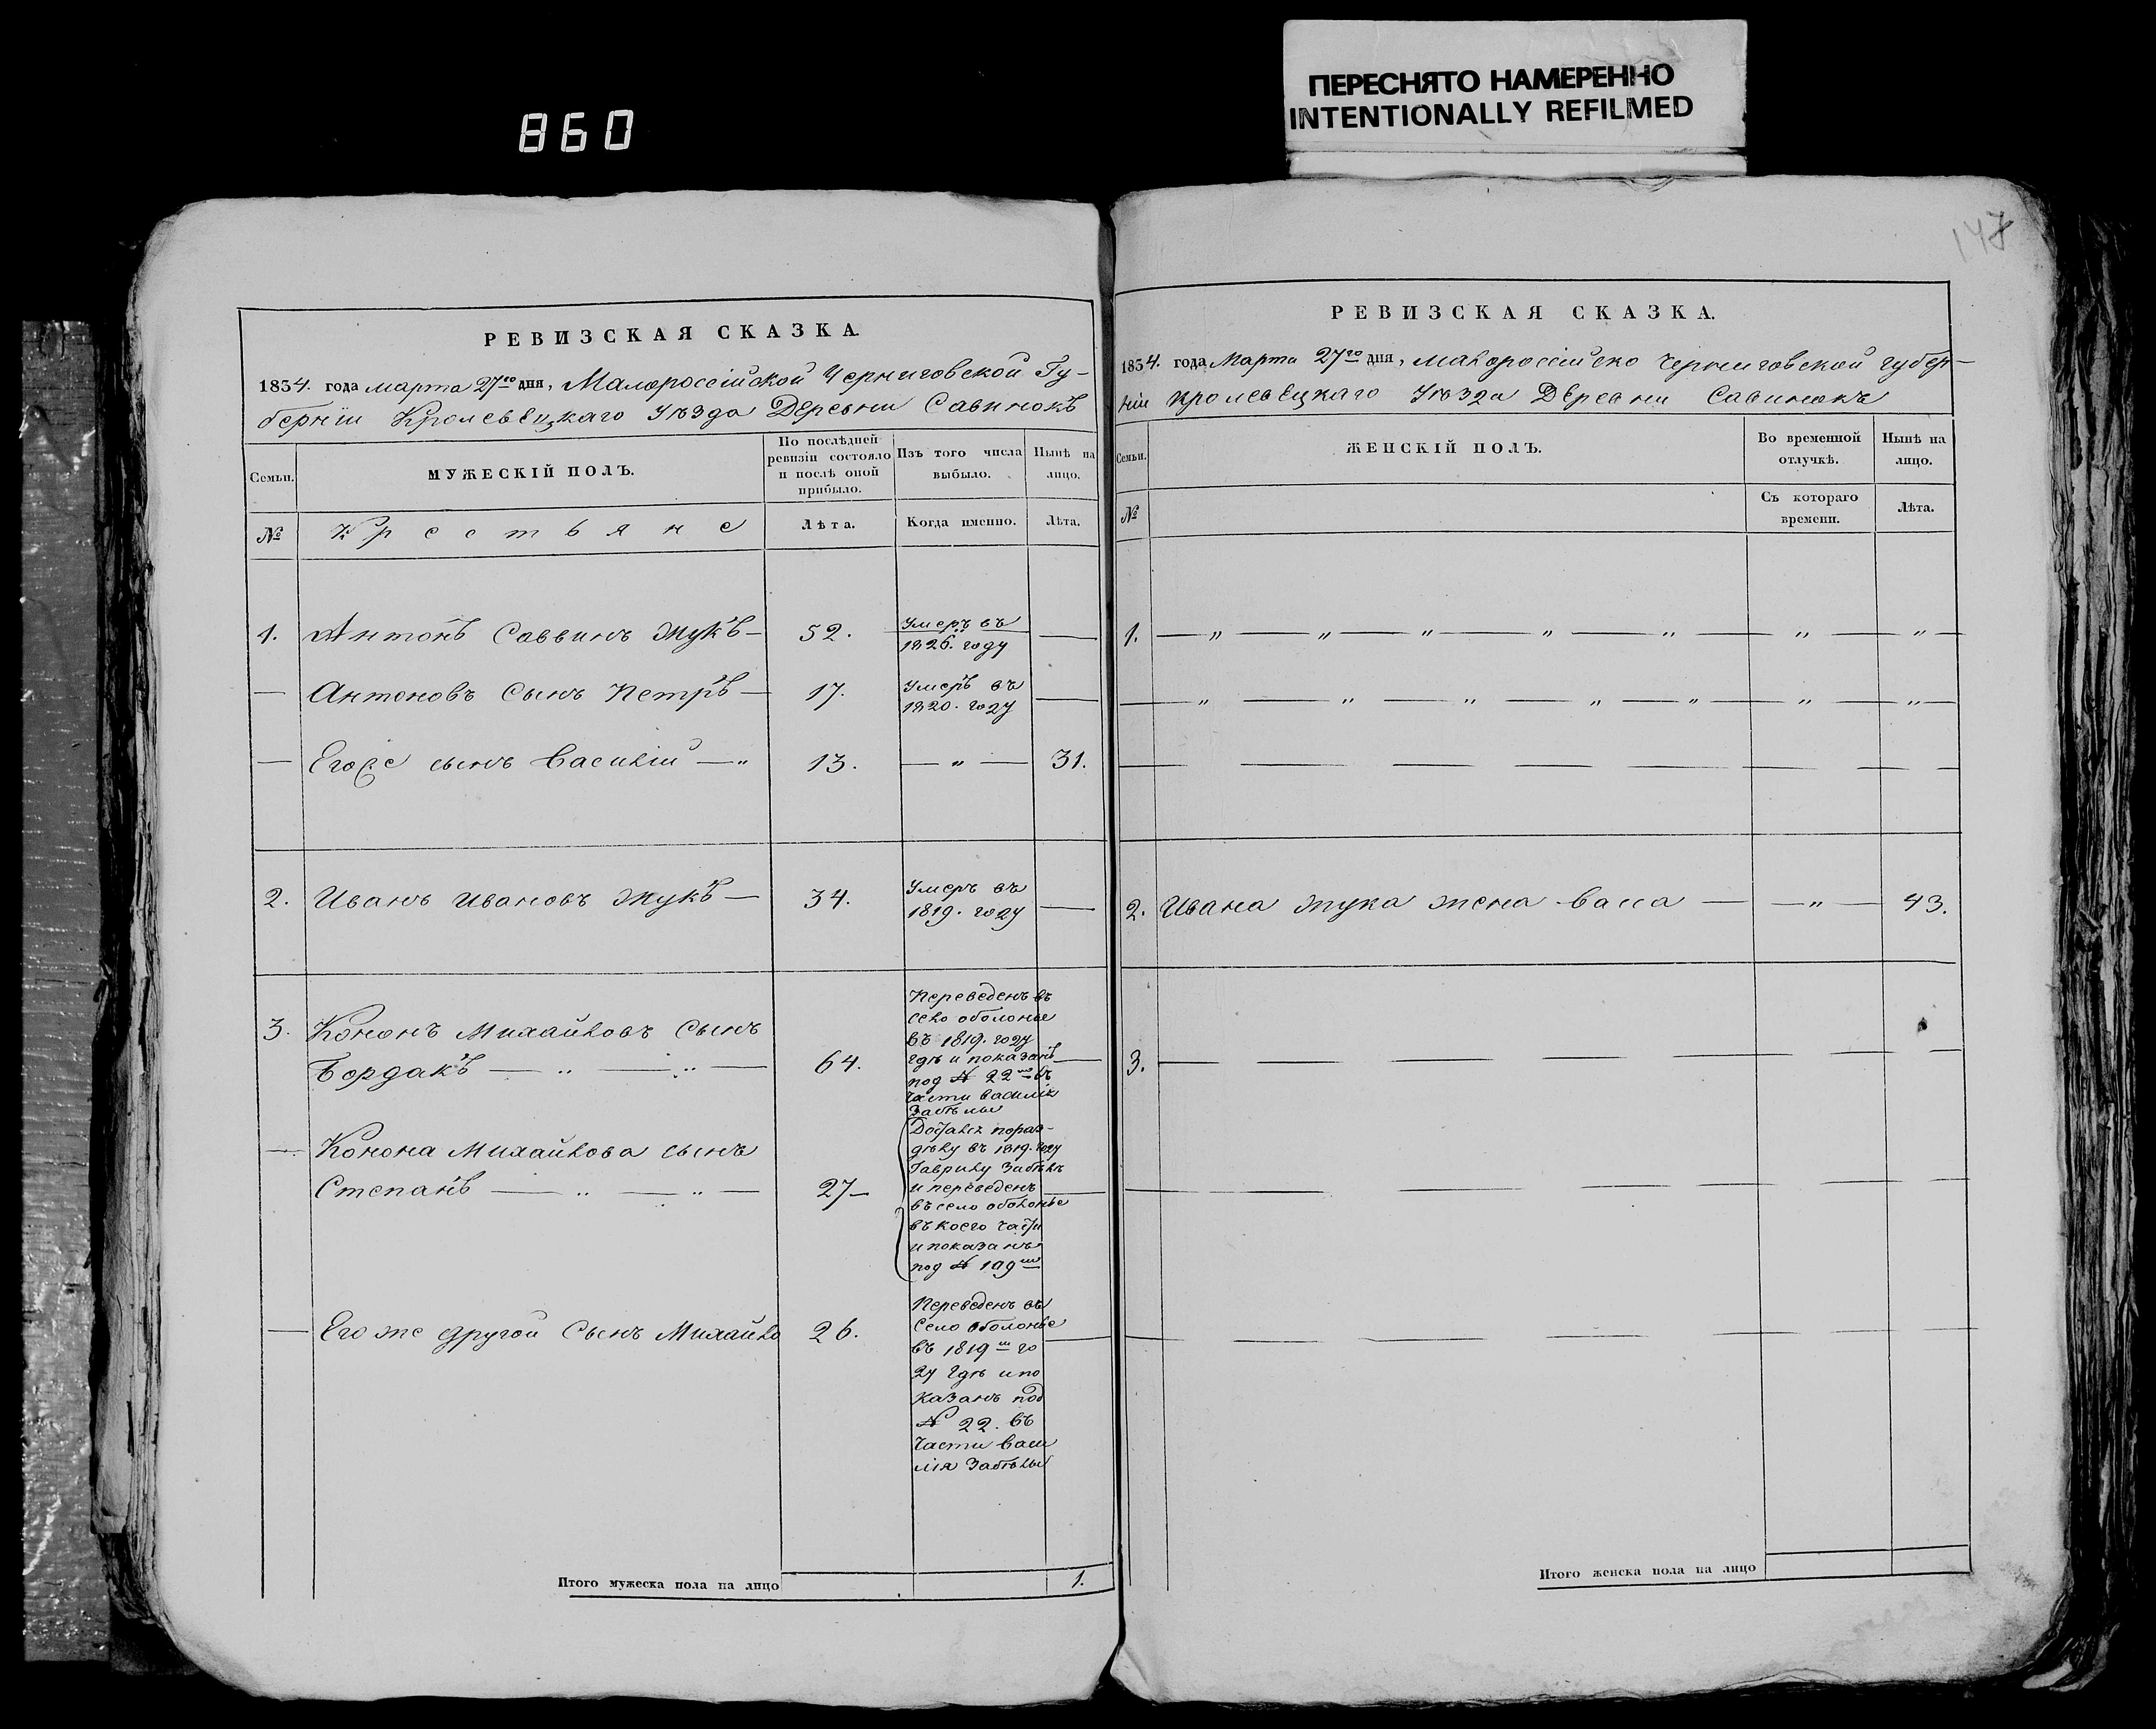 860
ПЕРЕСНЯТО НАМЕРЕННО
INTENTIONALLY REFILMED
147
РЕВИЗСКАЯ СКАЗКА.
1834. года марта 27го дня, Малороссійской Черниговской Гу-
берніи Кролевецкаго Уѣзда Деревни Савинокъ
Семьи.
МУЖЕСКІЙ ПОЛЪ.
По послѣдней
ревизіи состояло
и послѣ оной
прибыло.
Изъ того числа
выбыло.
Нынѣ на
лицо.
№
Крестьяне
Лѣта.
Когда именно.
Лѣта.
1. Антонъ Саввинъ Жукъ — 52.
Умеръ въ
1826. году
— Антоновъ Сынъ Петръ — 17.
Умеръ въ
1820. году
— Егоже сынъ Василій — „ 13. — „ — 31.
2. Иванъ Ивановъ Жукъ — 34.
Умеръ въ
1819. году
3. Кононъ Михайловъ Сынъ
Бордакъ — „ — „ — 64.
Переведенъ въ
село оболонье
въ 1819. году
гдѣ и показанъ
под № 22мъ въ
части василія
Забѣлы
— Конона Михайлова сынъ
Степанъ — „ — „ — 27 —
Досталсѧ пораз-
дѣлу въ 1819. году
Гаврилу Забѣлѣ
и переведенъ
въ село оболонье
въ коего части
и показанъ
под № 109мъ
— Его же другой Сынъ Михайло 26.
Переведенъ въ
Село оболонье
въ 1819м го
ду гдѣ и по
казанъ под
№ 22. въ
части Васи
лія Забѣлы
Итого мужеска пола на лицо 1.
РЕВИЗСКАЯ СКАЗКА.
1834. года Марта 27го дня, малороссійско Черниговской губер-
ніи Кролевецкаго Уѣзда Деревни Савинокъ
Семьи.
ЖЕНСКІЙ ПОЛЪ.
Во временной
отлучкѣ.
Нынѣ на
лицо.
№
Съ котораго
времени.
Лѣта.
1. — „ — „ — „ — „ — „ — „ — „ —
— „ — „ — „ — „ — „ — „ — „ —
2. Ивана Жука жена Васса — — „ — 43.
3. — — — —
Итого женска пола на лицо